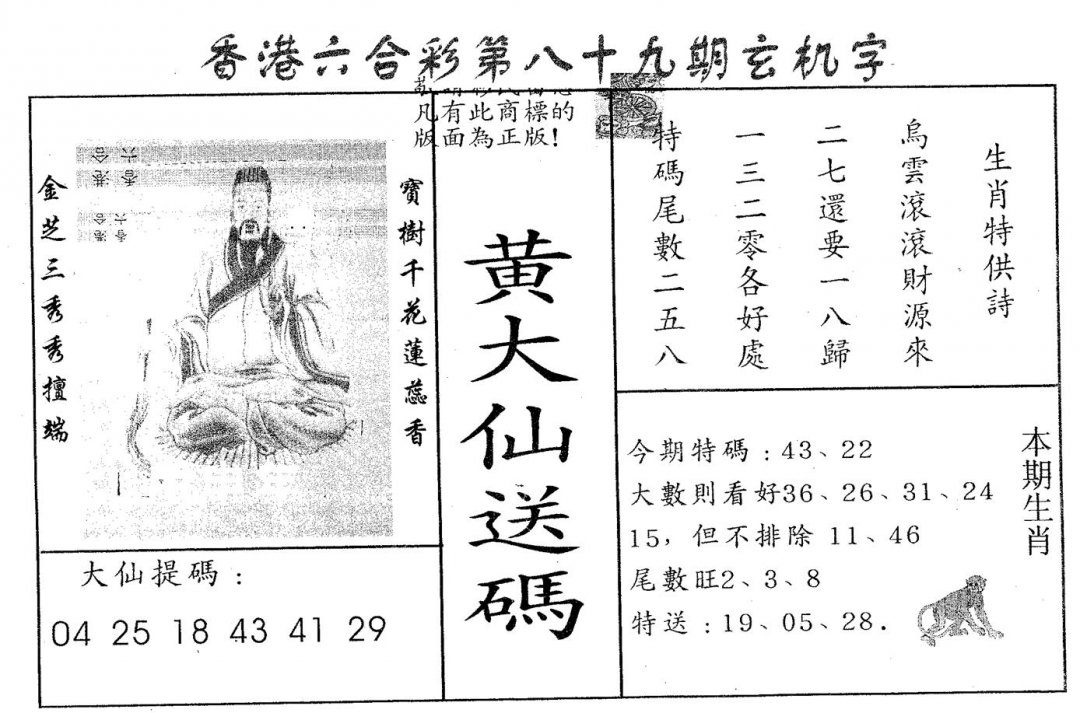 香港六合彩第八十九期玄机字
凡有此商標的
版面為正版!
金芝三秀秀擅端
寶樹千花蓮蕊香
六合
香港
六合
香港
大仙提碼:
04 25 18 43 41 29
黄大仙送碼
生肖特供詩
烏雲滾滾財源來
二七還要一八歸
一三二零各好處
特碼尾數二五八
本期生肖
今期特碼:43、22
大數則看好36、26、31、24
15,但不排除 11、46
尾數旺2、3、8
特送:19、05、28.